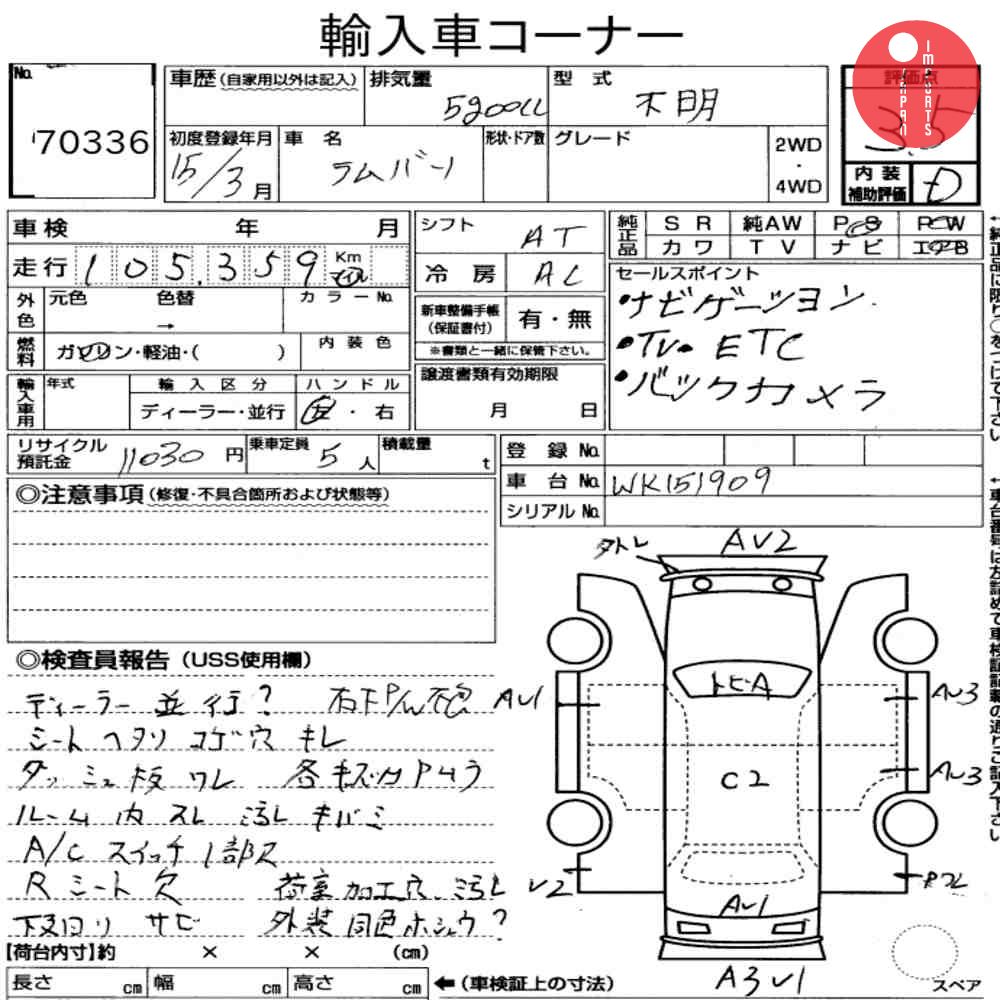 輸入車コーナー
JAPAN IMPORTS
No. 70336
車歴 (自家用以外は記入) 排気量 5900cc 型式 不明 評価点 3.5
初度登録年月 15/3月 車名 ラムバン 形状・ドア数 グレード 2WD・4WD
内装補助評価 D
車検 年 月 シフト AT 純正品 SR 純AW PS PW
カワ TV ナビ エアB
走行 105,359 Km マイル 冷房 AC
セールスポイント
・ナビゲーション
・TV・ETC
・バックカメラ
外色 元色 色替 → カラーNo.
新車整備手帳 (保証書付) 有・無
※書類と一緒に保管下さい。
燃料 ガソリン・軽油・( ) 内装色
譲渡書類有効期限 月 日
輸入車用 年式 輸入区分 ディーラー・並行 ハンドル 左・右
リサイクル預託金 11030円 乗車定員 5人 積載量 t
登録No.
車台No. WK151909
シリアルNo.
←純正品に限り○をつけて下さい
←車台番号は左詰めで車検証記載の通りご記入下さい
◎注意事項 (修復・不具合箇所および状態等)
◎検査員報告 (USS使用欄)
ディーラー並行?
シートヘタリ コゲ穴 キレ
ダッシュ板ワレ
ルーム内スレ 汚れ キバミ
A/Cスイッチ1部ス
Rシート欠 荷室加工穴 汚れ
下回り サビ 外装同色ホシュウ?
AV2
AV1
AV3
トビA
C2
AV3
V2
AV1
A3V1
スペア
【荷台内寸】約 × × (cm)
長さ cm 幅 cm 高さ cm ←(車検証上の寸法)